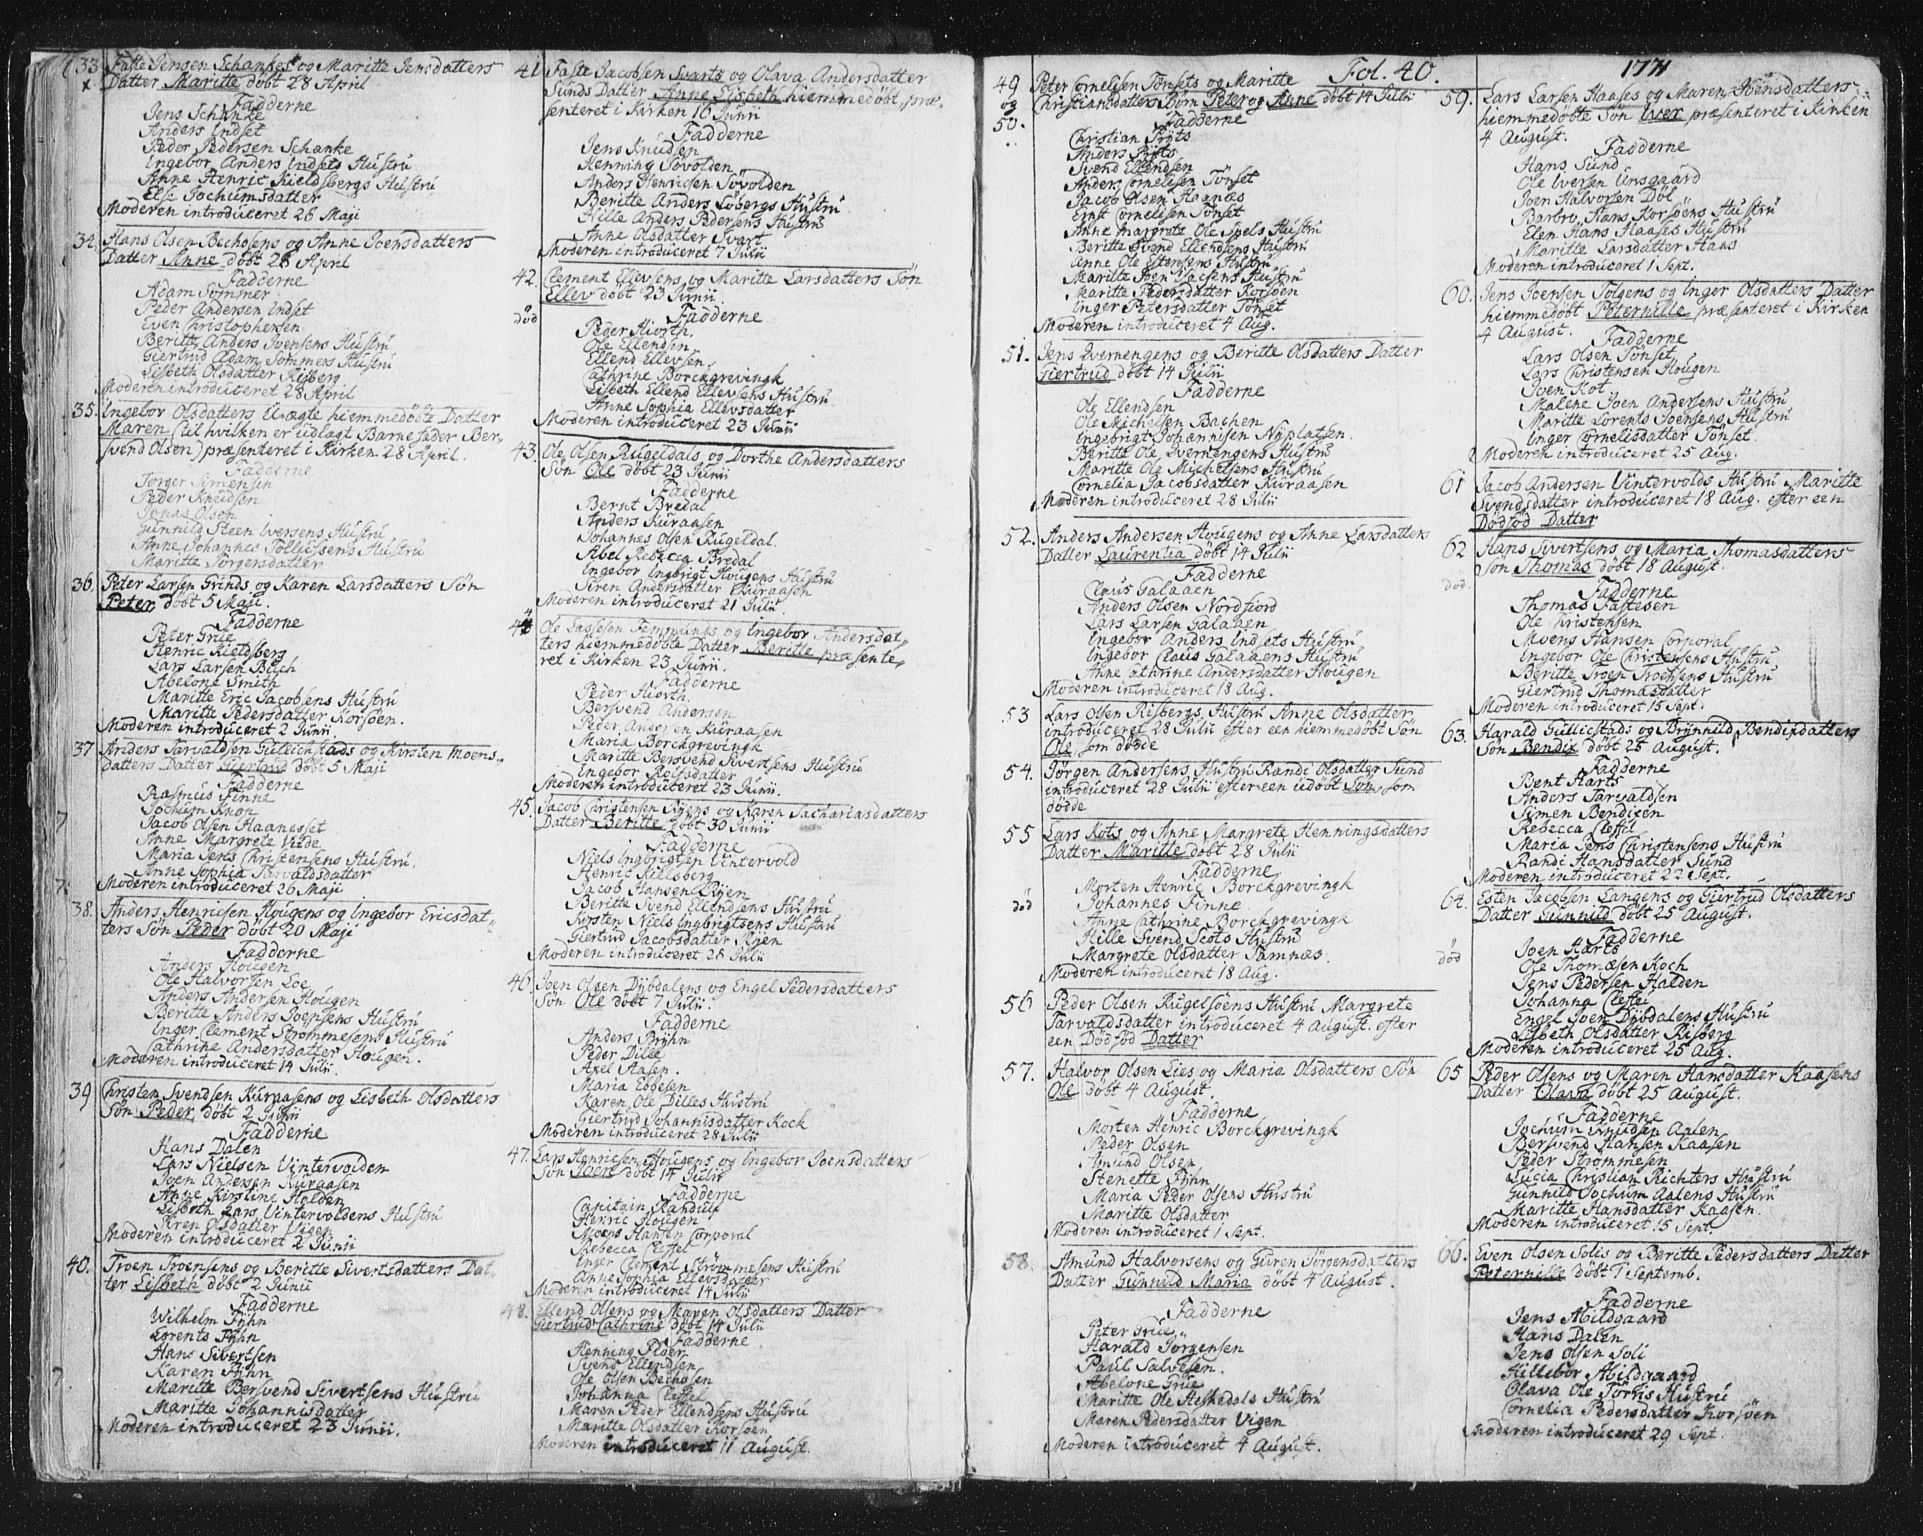 33 Faste Jensen Schankes og Maritte Jensdatters
x Datter Maritte döbt 28 April
Fadderne
Jens Schanke
Anders Indset
Peder Pedersen Schanke
Ingebor Anders Indsets Hustru
Anne Henric Kieldsbergs Hustru
Else Jochumsdatter
Moderen introduceret 26 Maji
34. Hans Olsen Bechosens og Anne Joensdatters
Datter Anne döbt 28 April
Fadderne
Adam Sommer
Peder Andersen Indset
Even Christophersen
Beritte Anders Ivensens Hustru
Giertrud Adam Sommers Hustru
Lisbeth Olsdatter Risberg
Moderen introduceret 28 April
35. Ingebor Olsdatters Uægte hiemmedöbte Datter
Maren (til hvilken er udlagt Barnefader Ber-
svend Olsen) præsenteret i Kirken 28 April.
Fadderne
Jörger Simensen
Peder Knudsen
Jonas Olsen
Gunnild Steen Iversens Hustru
Anne Johannes Tollufsens Hustru
Maritte Jörgensdatter
36. Peter Larsen Grinds og Karen Larsdatters Sön
Peter döbt 5 Maji.
Fadderne
Peter Grue
Henric Kieldsberg
Lars Larsen Buch
Abelone Smith
Maritte Eric Jacobsens Hustru
Maritte Pedersdatter Korsöen.
Moderen introduceret 2 Junii
37 Anders Tarvaldsen Gullichstads og Kirsten Moens-
datters Datter Giertrud döbt 5 Maji
Fadderne
Rasmus Finne
Jochum Knon
Jacob Olsen Haanesset
Anne Margrete Vide
Maria Jens Christensens Hustru.
Anne Sophia Tarvaldsdatter
Moderen introduceret 26 Maji
38. Anders Henricsen Hougens og Ingebor Ericsdat-
ters Sön Peder döbt 20 Maji
Fadderne
Anders Hougen
Ole Halvorsen Loe
Anders Andersen Hougen
Beritte Anders Joensens Hustru
Inger Clement Strömmesens Hustru
Cathrine Andersdatter Hougen.
Moderen introduceret 14 Julii.
39 Christen Svendsen Kuraasens og Lisbeth Olsdatters
Sön Peder döbt 2 Junii
Fadderne
Hans Dalen
Lars Nielsen Vintervolden
Joen Andersen Kuraasen
Anne Kirstine Halden
Lisbeth Lars Vintervoldens Hustru
Karen Olsdatter Vigen
Moderen introduceret 2 Junii
40. Troen Troensens og Beritte Sivertsdatters Dat-
ter Lisbeth döbt 2 Junii
Fadderne
Wilhelm Fÿhn
Lorents Fÿhn
Hans Sivertsen
Karen Fÿhn
Maritte Bersvend Sivertsens Hustru
Maritte Johannisdatter
Moderen introduceret 23 Junii.
41 Faste Jacobsen Svarts og Olava Andersdatter
Sunds Datter Anne Lisbeth hiemmedöbt præ-
senteret i Kirken 16 Junii
Fadderne
Jens Knudsen
Henning Sövolden
Anders Henricsen Sövolden
Beritte Anders Löbergs Hustru
Hille Anders Pedersens Hustru
Anne Olsdatter Svart
Moderen introduceret 7 Julii
42. Clement Ellevsens og Maritte Larsdatters Sön
Ellev döbt 23 Junii.
död Fadderne
Peder Hiorth
Ole Ellendsen
Ellend Ellevsen
Cathrine Borckgrevingk
Lisbeth Ellend Ellevsens Hustru
Anne Sophia Ellevsdatter
Moderen introduceret 23 Junii
43. Ole Olsen Rugeldals og Dorthe Andersdatters
Sön Ole döbt 23 Junii
Fadderne
Bernt Bredal
Anders Kuraasen
Johannes Olsen Rugeldal.
Abel Rebecca Bredal
Ingebor Ingbrigt Hougens Hustru
Siren Andersdatter Kuraasen
Moderen introduceret 21 Julii
44 Ole Lassesen Femmunds og Ingebor Andersdat-
ters hiemmedöbte Datter Beritte præsente-
ret i Kirken 23 Junii.
Fadderne
Peder Hiorth
Bersvend Andersen
Peder Andersen Kuraasen
Maria Borckgrevingk
Maritte Bersvend Sivertsens Hustru
Ingebor Rolfsdatter
Moderen introduceret 23 Junii.
45. Jacob Christensen Rÿens og Karen Sachariasdatters
Datter Beritte döbt 30 Junii
Fadderne
Niels Ingbrigtsen Vintervold
Henric Killsberg
Jacob Hansen Rÿen
Beritte Svend Ellendsens Hustru
Kirsten Niels Ingbrigtsens Hustru
Giertrud Jacobsdatter Rÿen
Moderen introduceret 28 Julii
46. Joen Olsen Dÿbdalens og Engel Pedersdatters
Sön Ole döbt 7 Julii.
Fadderne
Anders Brÿhn
Peder Dille
Axel Aasen
Maria Ebbesen
Karen Ole Dilles Hustru
Giertrud Johannisdatter Kock
Moderen introduceret 28 Julii
47. Lars Henricsen Hougens og Ingebor Joensdatters
Sön Joen döbt 14 Julii
Fadderne
Capitain Randulf
Henric Hougen
Moens Hansen Corporal
Rebecca Cleffel
Inger Clement Strömmesens Hustru
Anne Sophia Ellevsdatter
Moderen introduceret 14 Julii
48. Ellend Olsens og Maren Olsdatters Datter
Giertrud Cathrine döbt 14 Julii
Fadderne
Henning Floer
Svend Ellendsen
Ole Olsen Bechosen
Johanna Cleffel
Maren Peder Ellendsens Hustru
Maritte Olsdatter Korsöen
Moderen introduceret 11 August.
Fol. 40.
49 Peter Cornelisen Tönsets og Maritte
og Christiansdatters Börn Peter og Anne döbt 14 Julii
50. Fadderne
Christian Prÿts
Anders Prÿts
Svend Ellendsen
Anders Cornelisen Tönset
Jacob Olsen Hoanæs
Ernst Cornelisen Tönset
Anne Margrete Ole Spels Hustru
Beritte Svend Ellendsens Hustru
Anne Ole Estensens Hustru
Maritte Joen Isacsens Hustru
Maritte Pedersdatter Korsöen
Inger Petersdatter Tönset
Moderen introduceret 4 Aug.
51. Jens Ivernengens og Beritte Olsdatters Datter
Giertrud döbt 14 Julii
Fadderne
Ole Ellendsen
Ole Michelsen Bachen
Ingebrigt Johannisen Nÿplatsen.
Beritte Ole Ivernengens Hustru
Maritte Ole Michelsens Hustru
Cornelia Jacobsdatter Kuraasen
Moderen introduceret 28 Julii
52. Anders Andersen Hougens og Anne Larsdatters
Datter Laurentia döbt 14 Julii
Fadderne
Claus Galaaen
Anders Olsen Nordfiord
Lars Larsen Galaaen
Ingebor Anders Indsets Hustru
Ingebor Claus Galaaens Hustru
Anne Cathrine Andersdatter Hougen
Moderen introduceret 18 Aug.
53 Lars Olsen Risbergs Hustru Anne Olsdatter
introduceret 28 Julii efter een hiemmedöbt Sön
Ole som dödde
54. Jörgen Andersens Hustru Randi Olsdatter Sund
introduceret 28 Julii efter een udöbt Sön, som
dödde
55 Lars Kots og Anne Margrete Henningsdatters
Datter Maritte döbt 28 Julii
Fadderne
Morten Henric Borckgrevingk
död Johannes Finne
Anne Cathrine Borckgrevingk
Hille Svend Scots Hustru
Margrete Olsdatter Tamnæs.
Moderen introduceret 18 Aug.
56 Peder Olsen Rugelsöens Hustru Margrete
Tarvaldsdatter introduceret 4 August. efter
een Dödföd Datter
57. Halvor Olsen Lies og Maria Olsdatters Sön
Ole döbt 4 August.
Fadderne
Morten Henric Borckgrevingk
Peder Olsen
Amund Olsen
Stenette Fÿhn
Maria Peder Olsens Hustru
Maritte Olsdatter
Moderen introduceret 1 Sept.
58. Amund Halvorsens og Guren Jörgensdatters
Datter Gunnild Maria döbt 4 August.
Fadderne
Peter Grue
Harald Jörgensen
Paul Salvesen.
Abelone Grue
Maritte Ole Heskedals Hustru
Maren Pedersdatter Vigen
Moderen introduceret 4 August.
1771
59. Lars Larsen Haases og Maren Joensdatters
hiemmedöbte Sön Iver præsenteret i Kirken
4 August.
Fadderne
Hans Sund
Ole Iversen Unsgaard
Joen Halvorsen Döl
Barbro Hans Korsöens Hustru
Elen Hans Haases Hustru
Maritte Larsdatter Haas
Moderen introduceret 1 Sept.
60. Jens Joensen Tolgens og Inger Olsdatters Datter
hiemmedöbt Peternille præsenteret i Kirken
4 August.
Fadderne
Lars Olsen Tönset
Lars Christensen Hougen
Joen Kot
Malene Joen Andersens Hustru
Maritte Lorents Joensens Hustru
Inger Cornelisdatter Tönset.
Moderen introduceret 25 Aug.
61 Jacob Andersen Vintervolds Hustru Maritte
Svendsdatter introduceret 18 Aug. efter een
Dödföd Datter
62 Hans Sivertsens og Maria Thomasdatters
Sön Thomas döbt 18 August.
död. Fadderne
Thomas Fastesen
Ole Christensen
Moens Hansen Corporal
Ingebor Ole Christensens Hustru
Beritte Troen Troensens Hustru
Giertrud Thomasdatter
Moderen introduceret 15 Sept.
63. Harald Gullicstads og Brÿnnild Bendixdatters
Sön Bendix döbt 25 August.
Fadderne
Bent Harts
Anders Tarvaldsen
Simen Bendixen
Rebecca Cleffel
Maria Jens Christensens Hustru
Randi Hansdatter Sund
Moderen introduceret 22 Sept.
64. Esten Jacobsen Langens og Giertrud Olsdatters
Datter Gunnild döbt 25 August.
Fadderne
död Joen Harts
Ole Thomæsen Koch
Jens Pedersen Halden
Johanna Cleffel
Engel Joen Dÿbdalens Hustru
Lisbeth Olsdatter Risberg
Moderen introduceret 25 Aug.
65 Peder Olsens og Maren Hansdatter Kaasens
Datter Olava döbt 25 August.
Fadderne
Jochum Knudsen Aalen
Bersvend Hansen Kaasen
Peder Strömmesen
Lucia Christian Richters Hustru
Gunnild Jochum Aalens Hustru
Maritte Hansdatter Kaasen.
Moderen introduceret 15 Sept.
66. Even Olsen Solis og Beritte Pedersdatters Datter
Peternille döbt 1 Septemb.
Fadderne
Jens Abildgaard
Hans Dalen
Jens Olsen Soli
Hillebor Abildgaard
Olava Ole Torris Hustru
Cornelia Pedersdatter Korsöen
Moderen introduceret 29 Sept.